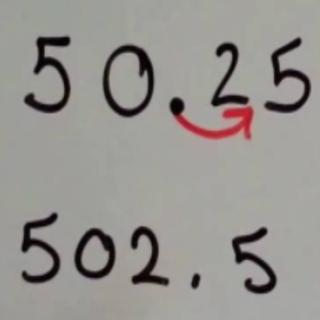 50.25
502.5